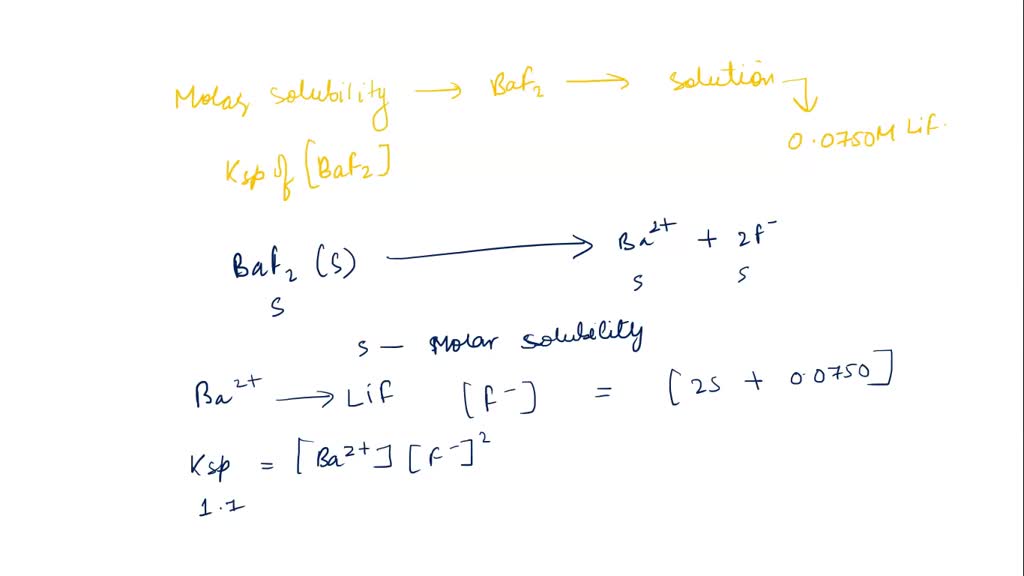 Molar solubility → BaF₂ → solution
0.0750M LiF.
Ksp of [BaF₂]
BaF₂ (s) → Ba²⁺ + 2F⁻
s s s
s – Molar solubility
Ba²⁺ → LiF [F⁻] = [2s + 0.0750]
Ksp = [Ba²⁺] [F⁻]²
1.7